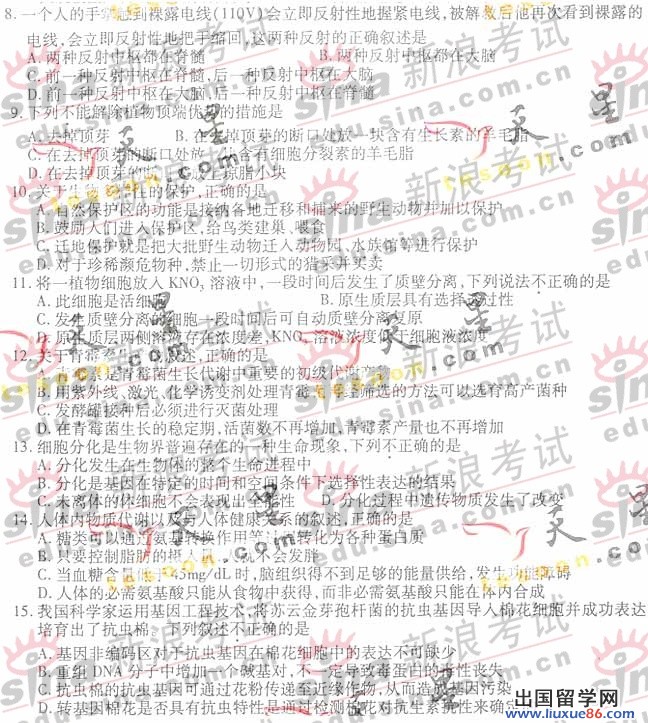 8. 一个人的手掌触到裸露电线(110V)会立即反射性地握紧电线,被解救后他再次看到裸露的
电线,会立即反射性地把手缩回,这两种反射的正确叙述是
A. 两种反射中枢都在脊髓 B. 两种反射中枢都在大脑
C. 前一种反射中枢在脊髓,后一种反射中枢在大脑
D. 前一种反射中枢在大脑,后一种反射中枢在脊髓
9. 下列不能解除植物顶端优势的措施是
A. 去掉顶芽 B. 在去掉顶芽的断口处放一块含有生长素的羊毛脂
C. 在去掉顶芽的断口处放一块含有细胞分裂素的羊毛脂
D. 在去掉顶芽的断口处放上琼脂小块
10. 关于生物多样性的保护,正确的是
A. 自然保护区的功能是接纳各地迁移和捕来的野生动物并加以保护
B. 鼓励人们进入保护区,给鸟类建巢、喂食
C. 迁地保护就是把大批野生动物迁入动物园、水族馆等进行保护
D. 对于珍稀濒危物种,禁止一切形式的猎采并买卖
11. 将一植物细胞放入KNO₃溶液中,一段时间后发生了质壁分离,下列说法不正确的是
A. 此细胞是活细胞 B. 原生质层具有选择透过性
C. 发生质壁分离的细胞一段时间后可自动质壁分离复原
D. 原生质层两侧溶液存在浓度差,KNO₃溶液浓度低于细胞液浓度
12. 关于青霉素生产的叙述,正确的是
A. 青霉素是青霉菌生长代谢中重要的初级代谢产物
B. 用紫外线、激光、化学诱变剂处理青霉菌再筛选的方法可以选育高产菌种
C. 发酵罐接种后必须进行灭菌处理
D. 在青霉菌生长的稳定期,活菌数不再增加,青霉素产量也不再增加
13. 细胞分化是生物界普遍存在的一种生命现象,下列不正确的是
A. 分化发生在生物体的整个生命进程中
B. 分化是基因在特定的时间和空间条件下选择性表达的结果
C. 未离体的体细胞不会表现出全能性 D. 分化过程中遗传物质发生了改变
14. 人体内物质代谢以及与人体健康关系的叙述,正确的是
A. 糖类可以通过氨基转换作用等过程转化为各种蛋白质
B. 只要控制脂肪的摄入量,人就不会发胖
C. 当血糖含量低于45mg/dL时,脑组织得不到足够的能量供给,发生功能障碍
D. 人体的必需氨基酸只能从食物中获得,而非必需氨基酸只能在体内合成
15. 我国科学家运用基因工程技术,将苏云金芽孢杆菌的抗虫基因导入棉花细胞并成功表达
培育出了抗虫棉。下列叙述不正确的是
A. 基因非编码区对于抗虫基因在棉花细胞中的表达不可缺少
B. 重组DNA分子中增加一个碱基对,不一定导致毒蛋白的毒性丧失
C. 抗虫棉的抗虫基因可通过花粉传递至近缘作物,从而造成基因污染
D. 转基因棉花是否具有抗虫特性是通过检测棉花对抗生素抗性来确定
新浪考试
sina
edu.sina.com.cn
天星
tesoon.com
出国留学网
www.liuxue86.com